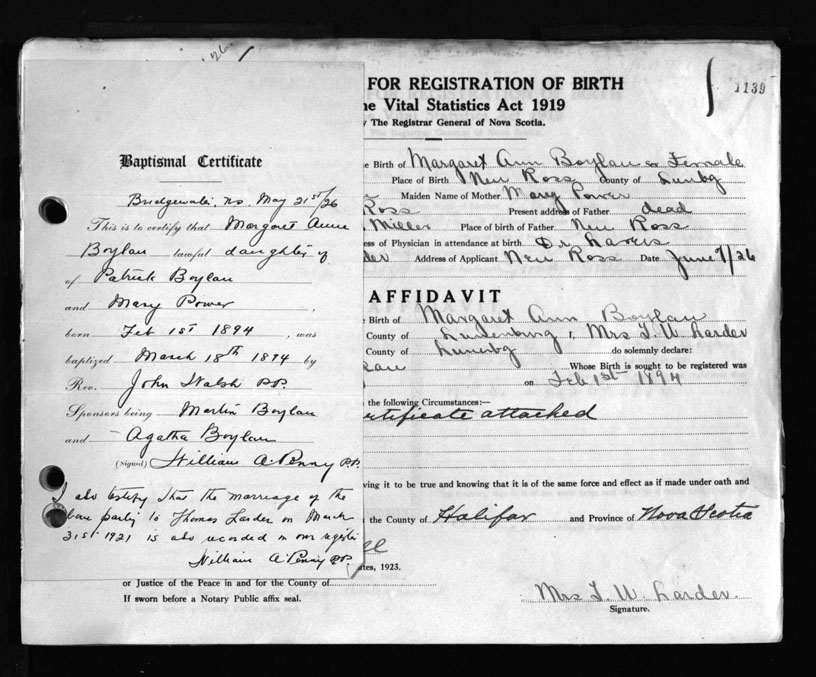 1139
FOR REGISTRATION OF BIRTH
Vital Statistics Act 1919
The Registrar General of Nova Scotia.
Birth of Margaret Ann Boylan Sex Female
Place of Birth New Ross County of Lunbg
Maiden Name of Mother Mary Power
Ross Present address of Father dead
Miller Place of birth of Father New Ross
of Physician in attendance at birth Dr Lavers
Address of Applicant New Ross Date June 7/26
AFFIDAVIT
Birth of Margaret Ann Boylan
County of Lunenburg I, Mrs T. W. Larder
County of Lunenbg do solemnly declare:
Whose Birth is sought to be registered was
on Feb 1st 1894
the following Circumstances:—
attached
it to be true and knowing that it is of the same force and effect as if made under oath and
the County of Halifax and Province of Nova Scotia
1923.
or Justice of the Peace in and for the County of
If sworn before a Notary Public affix seal.
Mrs T. W. Larder
Signature.
Baptismal Certificate
Bridgewater, N.S. May 21st/26
This is to certify that Margaret Anne
Boylan lawful daughter of
of Patrick Boylan
and Mary Power,
born Feb 1st 1894, was
baptized March 18th 1894 by
Rev. John Walsh P.P.
Sponsors being Martin Boylan
and Agatha Boylan
(Signed) William A. Penny P.P.
I also testify that the marriage of the
above party to Thomas Larder on March
21st 1921 is also recorded in our register
William A. Penny P.P.